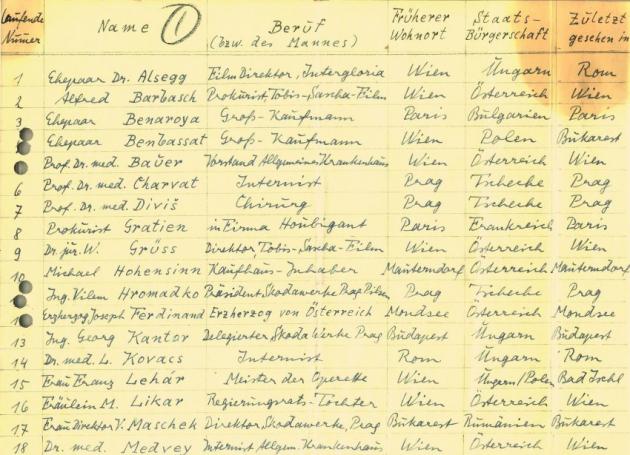 Laufende Numer Name 1 Beruf (bzw. des Mannes) Früherer Wohnort Staats-Bürgerschaft Zületzt gesehen in
1 Ehepaar Dr. Alsegg Film Direktor, Intergloria Wien Üngarn Rom
2 Alfred Barbasch Prokürist, Tobis-Sascha-Film Wien Österreich Wien
3 Ehepaar Benaroya Groß-Kaufmann Paris Bulgarien Paris
Ehepaar Benbassat Groß-Kaufmann Wien Polen Bukarest
Prof. Dr. med. Baüer Vorstand Allgemeines Krankenhaus Wien Österreich Wien
6 Prof. Dr. med. Charvat Internist Prag Tscheche Prag
7 Prof. Dr. med. Diviš Chirurg Prag Tscheche Prag
8 Prokürist Gratien in Firma Houbigant Paris Frankreich Paris
9 Dr. jur. W. Grüss Direktor, Tobis-Sascha-Film Wien Österreich Wien
10 Michael Hohensinn Kaufhaus-Inhaber Mauterndorf Österreich Mauterndorf
Ing. Vilem Hromadko Präsident, Skodawerke Prag Pilsen Prag Tscheche Prag
Erzherzog Joseph Ferdinand Erzherzog von Österreich Mondsee Österreich Mondsee
13 Ing. Georg Kantor Delegierter Skoda Werke Prag Budapest Üngarn Budapest
14 Dr. med. L. Kovacs Internist Rom Üngarn Rom
15 Frau Franz Lehár Meister der Operette Wien Üngarn/Polen Bad Ischl
16 Fräulein M. Likar Regierungsrats-Tochter Wien Österreich Wien
17 Frau Direktor V. Maschek Direktor, Skodawerke, Prag Bukarest Rumänien Bukarest
18 Dr. med. Medvey Internist Allgem. Krankenhaus Wien Österreich Wien